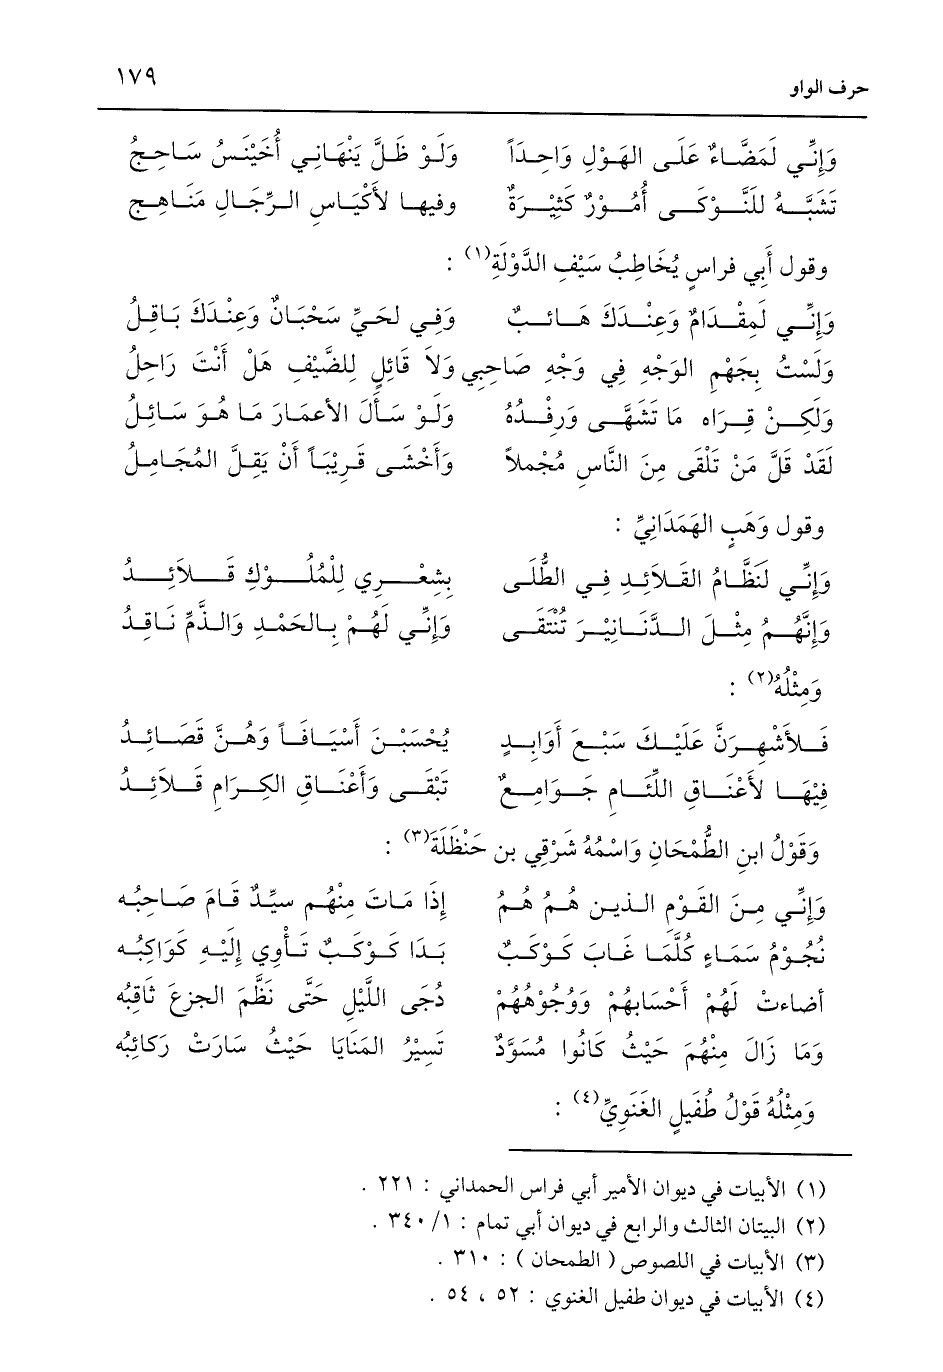 حرف الواو ١٧٩
وَإِنِّي لَمَضَّاءٌ عَلَى الهَوْلِ وَاحِداً وَلَوْ ظَلَّ يَنْهَانِي أُخَيْنَسُ سَاحِجُ
تَشَبَّهُ لِلنَّوْكَى أُمُوْرٌ كَثِيْرَةٌ وفيها لأَكْيَاسِ الرِّجَالِ مَنَاهِج
وقول أَبِي فراسٍ يُخَاطِبُ سَيْفِ الدَّوْلَةِ(١) :
وَإِنِّي لَمِقْدَامٌ وَعِنْدَكَ هَائِبٌ وَفِي لحَيِّ سَحْبَانٌ وَعِنْدَكَ بَاقِلُ
وَلَسْتُ بِجَهْمِ الوَجْهِ فِي وَجْهِ صَاحِبِي وَلاَ قَائِلٍ لِلضَّيْفِ هَلْ أَنْتَ رَاحِلُ
وَلَكِنْ قِرَاه مَا تَشَهَّى وَرِفْدُهُ وَلَوْ سَأَلَ الأعمَارَ مَا هُوَ سَائِلُ
لَقَدْ قَلَّ مَنْ تَلْقَى مِنَ النَّاسِ مُجْمِلاً وَأَخْشَى قَرِيْبَاً أَنْ يَقِلَّ المُجَامِلُ
وقول وَهَبٍ الهَمَدَانِيِّ :
وَإِنِّي لَنَظَّامُ القَلاَئِدِ فِي الطُّلَى بِشِعْرِي لِلْمُلُوْكِ قَلاَئِدُ
وَإِنَّهُمُ مِثْلَ الدَّنَانِيْرَ تُنْتَقَى وَإِنِّي لَهُمْ بِالحَمْدِ وَالذَّمِّ نَاقِدُ
وَمِثْلُهُ(٢) :
فَلأَشْهِرَنَّ عَلَيْكَ سَبْعَ أَوَابِدٍ يُحْسَبْنَ أَسْيَافَاً وَهُنَّ قَصَائِدُ
فِيْهَا لأَعْنَاقِ اللِّئَامِ جَوَامِعٌ تَبْقَى وَأَعْنَاقِ الكِرَامِ قَلاَئِدُ
وَقَوْلُ ابنِ الطُّمْحَانِ وَاسْمُهُ شَرْقِي بن حَنْظَلَةَ(٣) :
وَإِنِّي مِنَ القَوْمِ الذين هُمُ هُمُ إِذَا مَاتَ مِنْهُم سيِّدٌ قَامَ صَاحِبُه
نُجُوْمُ سَمَاءٍ كُلَّمَا غَابَ كَوْكَبٌ بَدَا كَوْكَبٌ تَأْوِي إِلَيْهِ كَوَاكِبُه
أضاءتْ لَهُمْ أَحْسَابهُمْ وَوُجُوْهُهُمْ دُجَى اللَّيْلِ حَتَّى نَظَّمَ الجزعَ ثَاقِبُه
وَمَا زَالَ مِنْهُمَ حَيْثُ كَانُوا مُسَوَّدٌ تَسِيْرُ المَنَايَا حَيْثُ سَارَتْ رَكَائِبُه
وَمِثْلُهُ قَوْلُ طُفَيلٍ الغَنَوِيِّ(٤) :
(١) الأبيات في ديوان الأمير أبي فراس الحمداني : ٢٢١ .
(٢) البيتان الثالث والرابع في ديوان أبي تمام : ١/ ٣٤٠ .
(٣) الأبيات في اللصوص ( الطمحان ) : ٣١٠ .
(٤) الأبيات في ديوان طفيل الغنوي : ٥٢ ، ٥٤ .